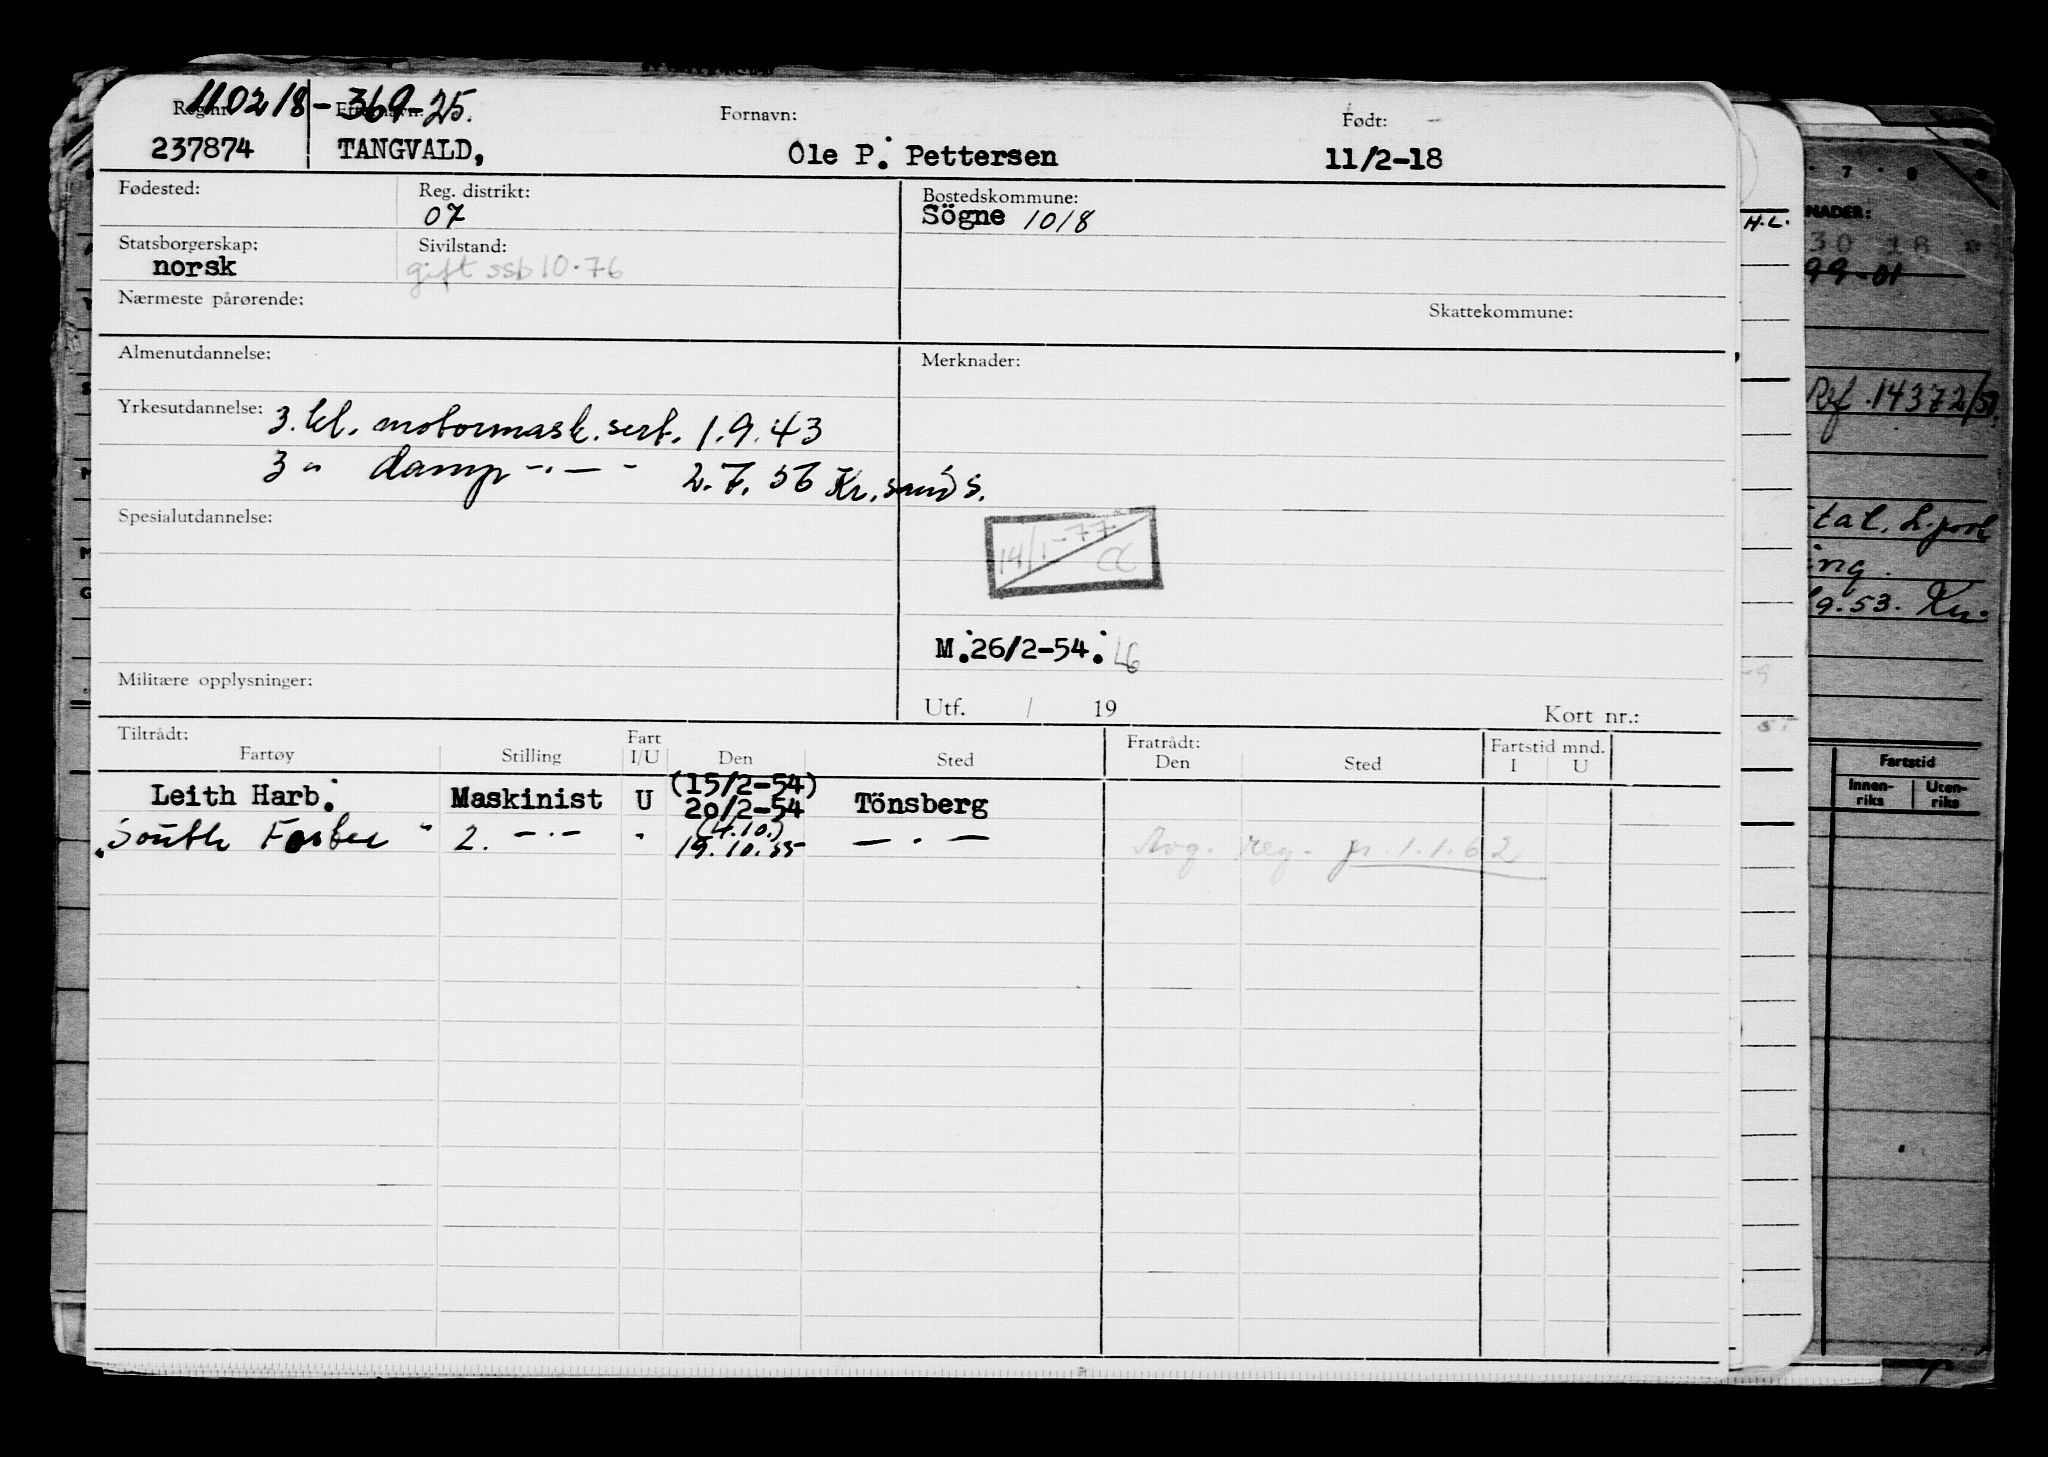 110218-369-25.
Reg.nr. Etternavn: Fornavn: Født:
237874 TANGVALD, Ole P. Pettersen 11/2-18
Fødested: Reg. distrikt: Bostedskommune:
07 Sögne 1018
Statsborgerskap: Sivilstand:
norsk gift ssb 10.76
Nærmeste pårørende: Skattekommune:
Almenutdannelse: Merknader:
Yrkesutdannelse: 3. kl. motormask.sert. 1.9.43
3 " damp -.- - 2.7.56 Kr.sand S.
Spesialutdannelse:
14/1-77 a
M.26/2-54. LG
Militære opplysninger:
Utf. / 19 Kort nr.:
Tiltrådt: Fratrådt: Fartstid mnd.
Fartøy Stilling Fart I/U Den Sted Den Sted I U
Leith Harb. Maskinist U (15/2-54) 20/2-54 Tönsberg
"South Foster" 2. -.- " (4.10.) 19.10.55 -.-
Avg. reg. pr. 1.1.62
H.L.
7 8
NADER:
30 18
99-01
Ref. 14372/51
tal. L.pool
ing.
9.53. Kr.
Fartstid
Innen-riks Uten-riks